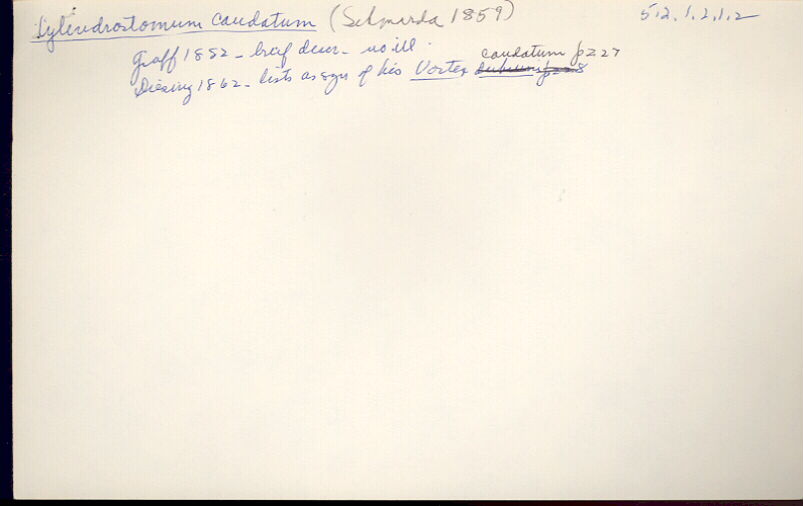 Cylindrostomum caudatum (Schmarda 1859) 5.2.1.2.1.2
Graff 1882 - brief descr - no ill.
Diesing 1862 - lists as syn of his Vortex caudatum p 227